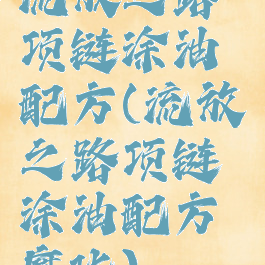 流放之路
项链涂油
配方(流放
之路项链
涂油配方